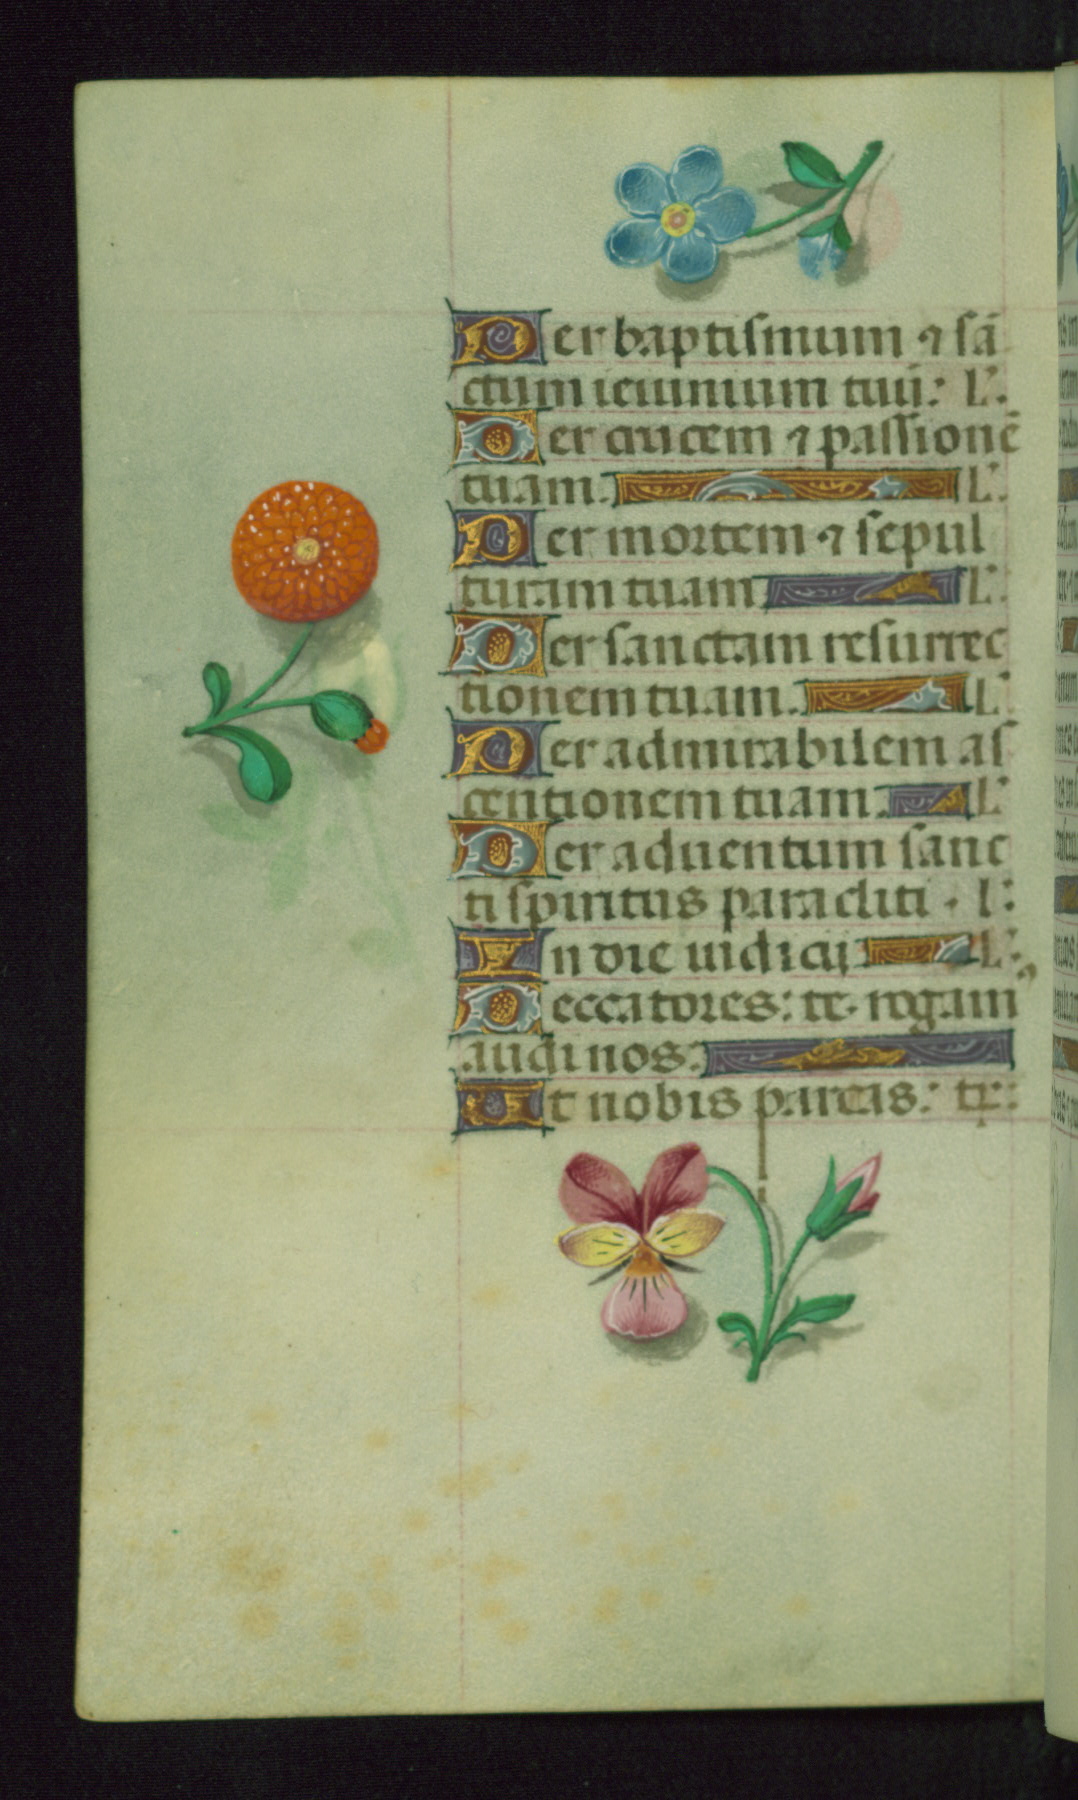 Per baptismum ⁊ sā
ctum ieiunium tuū: L.
Per crucem ⁊ passionē
tuam. L.
Per mortem ⁊ sepul
turam tuam L.
Per sanctam resurrec
tionem tuam. L
Per admirabilem as
centionem tuam. L
Per aduentum sanc
ti spiritus paracliti. l:
In die iudicij L.
Peccatores: te. rogam⁹
audi nos.
Ut nobis parcas: te: